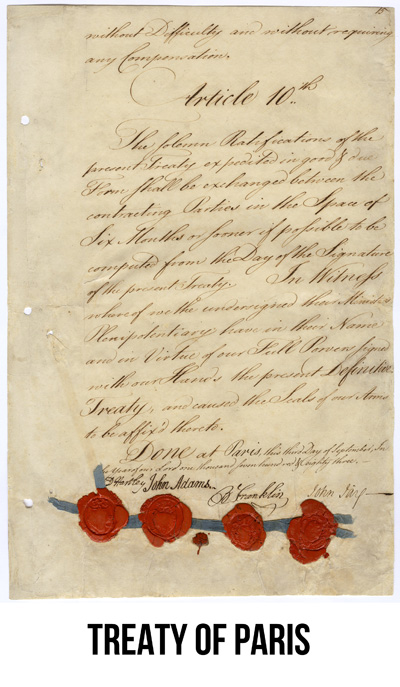 without Difficulty and without requiring
any Compensation.
Article 10.th
The solemn Ratifications of the
present Treaty expedited in good & due
Form shall be exchanged between the
contracting Parties in the Space of
Six Months or sooner if possible to be
computed from the Day of the Signature
of the present Treaty. In Witness
whereof we the undersigned their Ministers
Plenipotentiary have in their Name
and in Virtue of our Full Powers signed
with our Hands the present Definitive
Treaty, and caused the Seals of our Arms
to be affix'd thereto.
Done at Paris, this third Day of September, In the
Year of our Lord one thousand seven hundred & eighty three.
D Hartley John Adams. B Franklin John Jay
TREATY OF PARIS